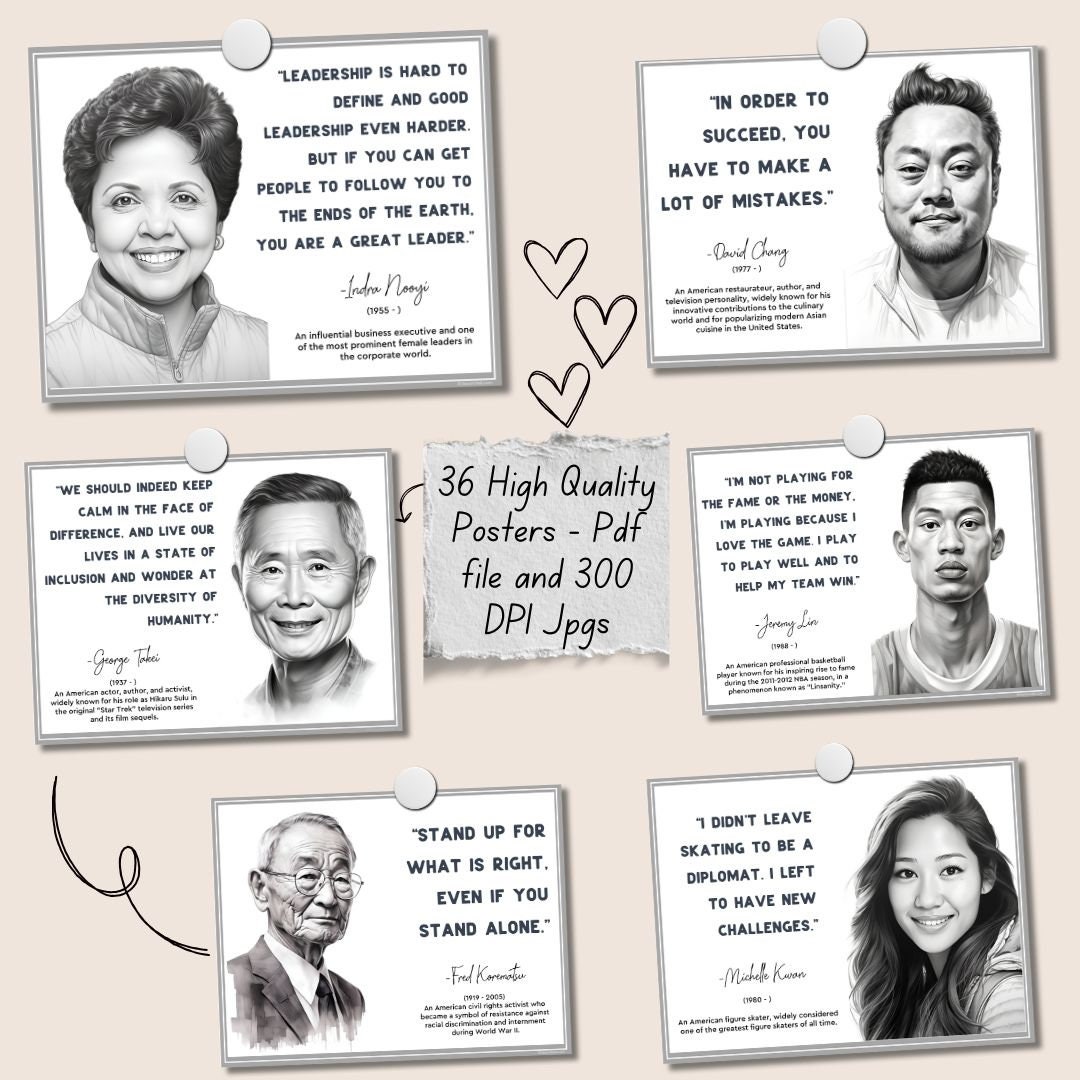 "LEADERSHIP IS HARD TO
DEFINE AND GOOD
LEADERSHIP EVEN HARDER.
BUT IF YOU CAN GET
PEOPLE TO FOLLOW YOU TO
THE ENDS OF THE EARTH,
YOU ARE A GREAT LEADER."
-Indra Nooyi
(1955 - )
An influential business executive and one
of the most prominent female leaders in
the corporate world.
"IN ORDER TO
SUCCEED, YOU
HAVE TO MAKE A
LOT OF MISTAKES."
-David Chang
(1977 - )
An American restaurateur, author, and
television personality, widely known for his
innovative contributions to the culinary
world and for popularizing modern Asian
cuisine in the United States.
"WE SHOULD INDEED KEEP
CALM IN THE FACE OF
DIFFERENCE, AND LIVE OUR
LIVES IN A STATE OF
INCLUSION AND WONDER AT
THE DIVERSITY OF
HUMANITY."
-George Takei
(1937 - )
An American actor, author, and activist,
widely known for his role as Hikaru Sulu in
the original "Star Trek" television series
and its film sequels.
36 High Quality
Posters - Pdf
file and 300
DPI Jpgs
"I'M NOT PLAYING FOR
THE FAME OR THE MONEY,
I'M PLAYING BECAUSE I
LOVE THE GAME. I PLAY
TO PLAY WELL AND TO
HELP MY TEAM WIN."
-Jeremy Lin
(1988 - )
An American professional basketball
player known for his inspiring rise to fame
during the 2011-2012 NBA season, in a
phenomenon known as "Linsanity."
"STAND UP FOR
WHAT IS RIGHT,
EVEN IF YOU
STAND ALONE."
-Fred Korematsu
(1919 - 2005)
An American civil rights activist who
became a symbol of resistance against
racial discrimination and internment
during World War II.
"I DIDN'T LEAVE
SKATING TO BE A
DIPLOMAT. I LEFT
TO HAVE NEW
CHALLENGES."
-Michelle Kwan
(1980 - )
An American figure skater, widely considered
one of the greatest figure skaters of all time.